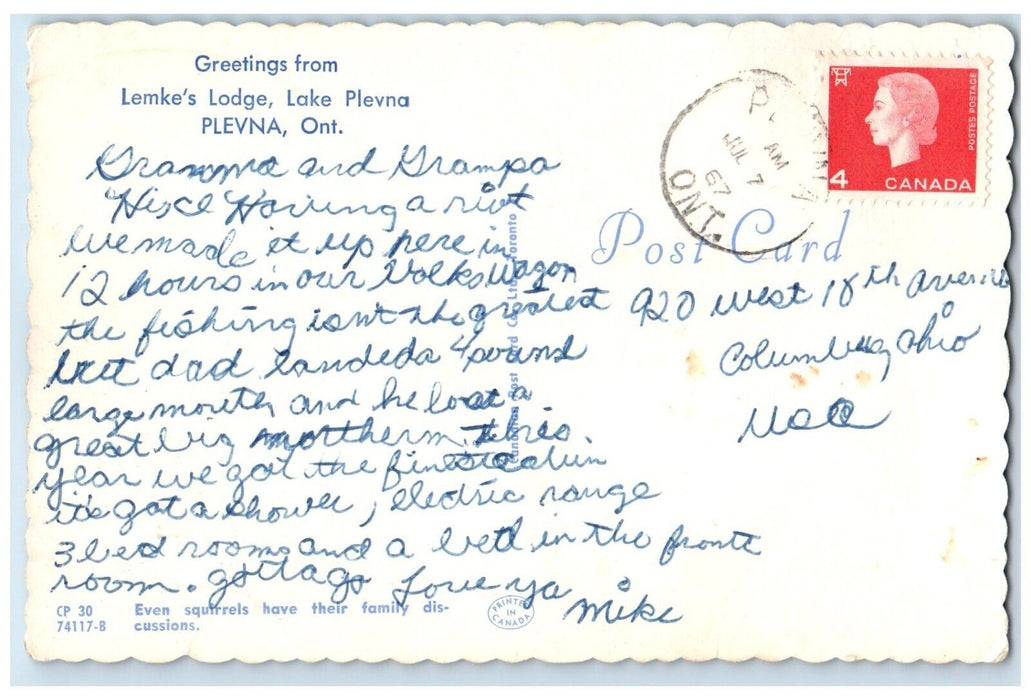 Greetings from
Lemke's Lodge, Lake Plevna
PLEVNA, Ont.
Gramma and Grampa
Having a riot
we made it up here in
12 hours in our Volkswagon
the fishing isn't the greatest
but dad landed a 4 pound
large mouth and he lost a
great big northern. this
year we got the finest cabin
it's got a shower, electric range
3 bed rooms and a bed in the frontt
room. gotta go Love ya
Mike
CP 30 Even squirrels have their family dis-
74117-B cussions.
PRINTED IN CANADA
Post Card
920 west 10th avenue
Columbus, Ohio
USA
AM
JUL 7
67
ONT.
POSTES POSTAGE
4 CANADA